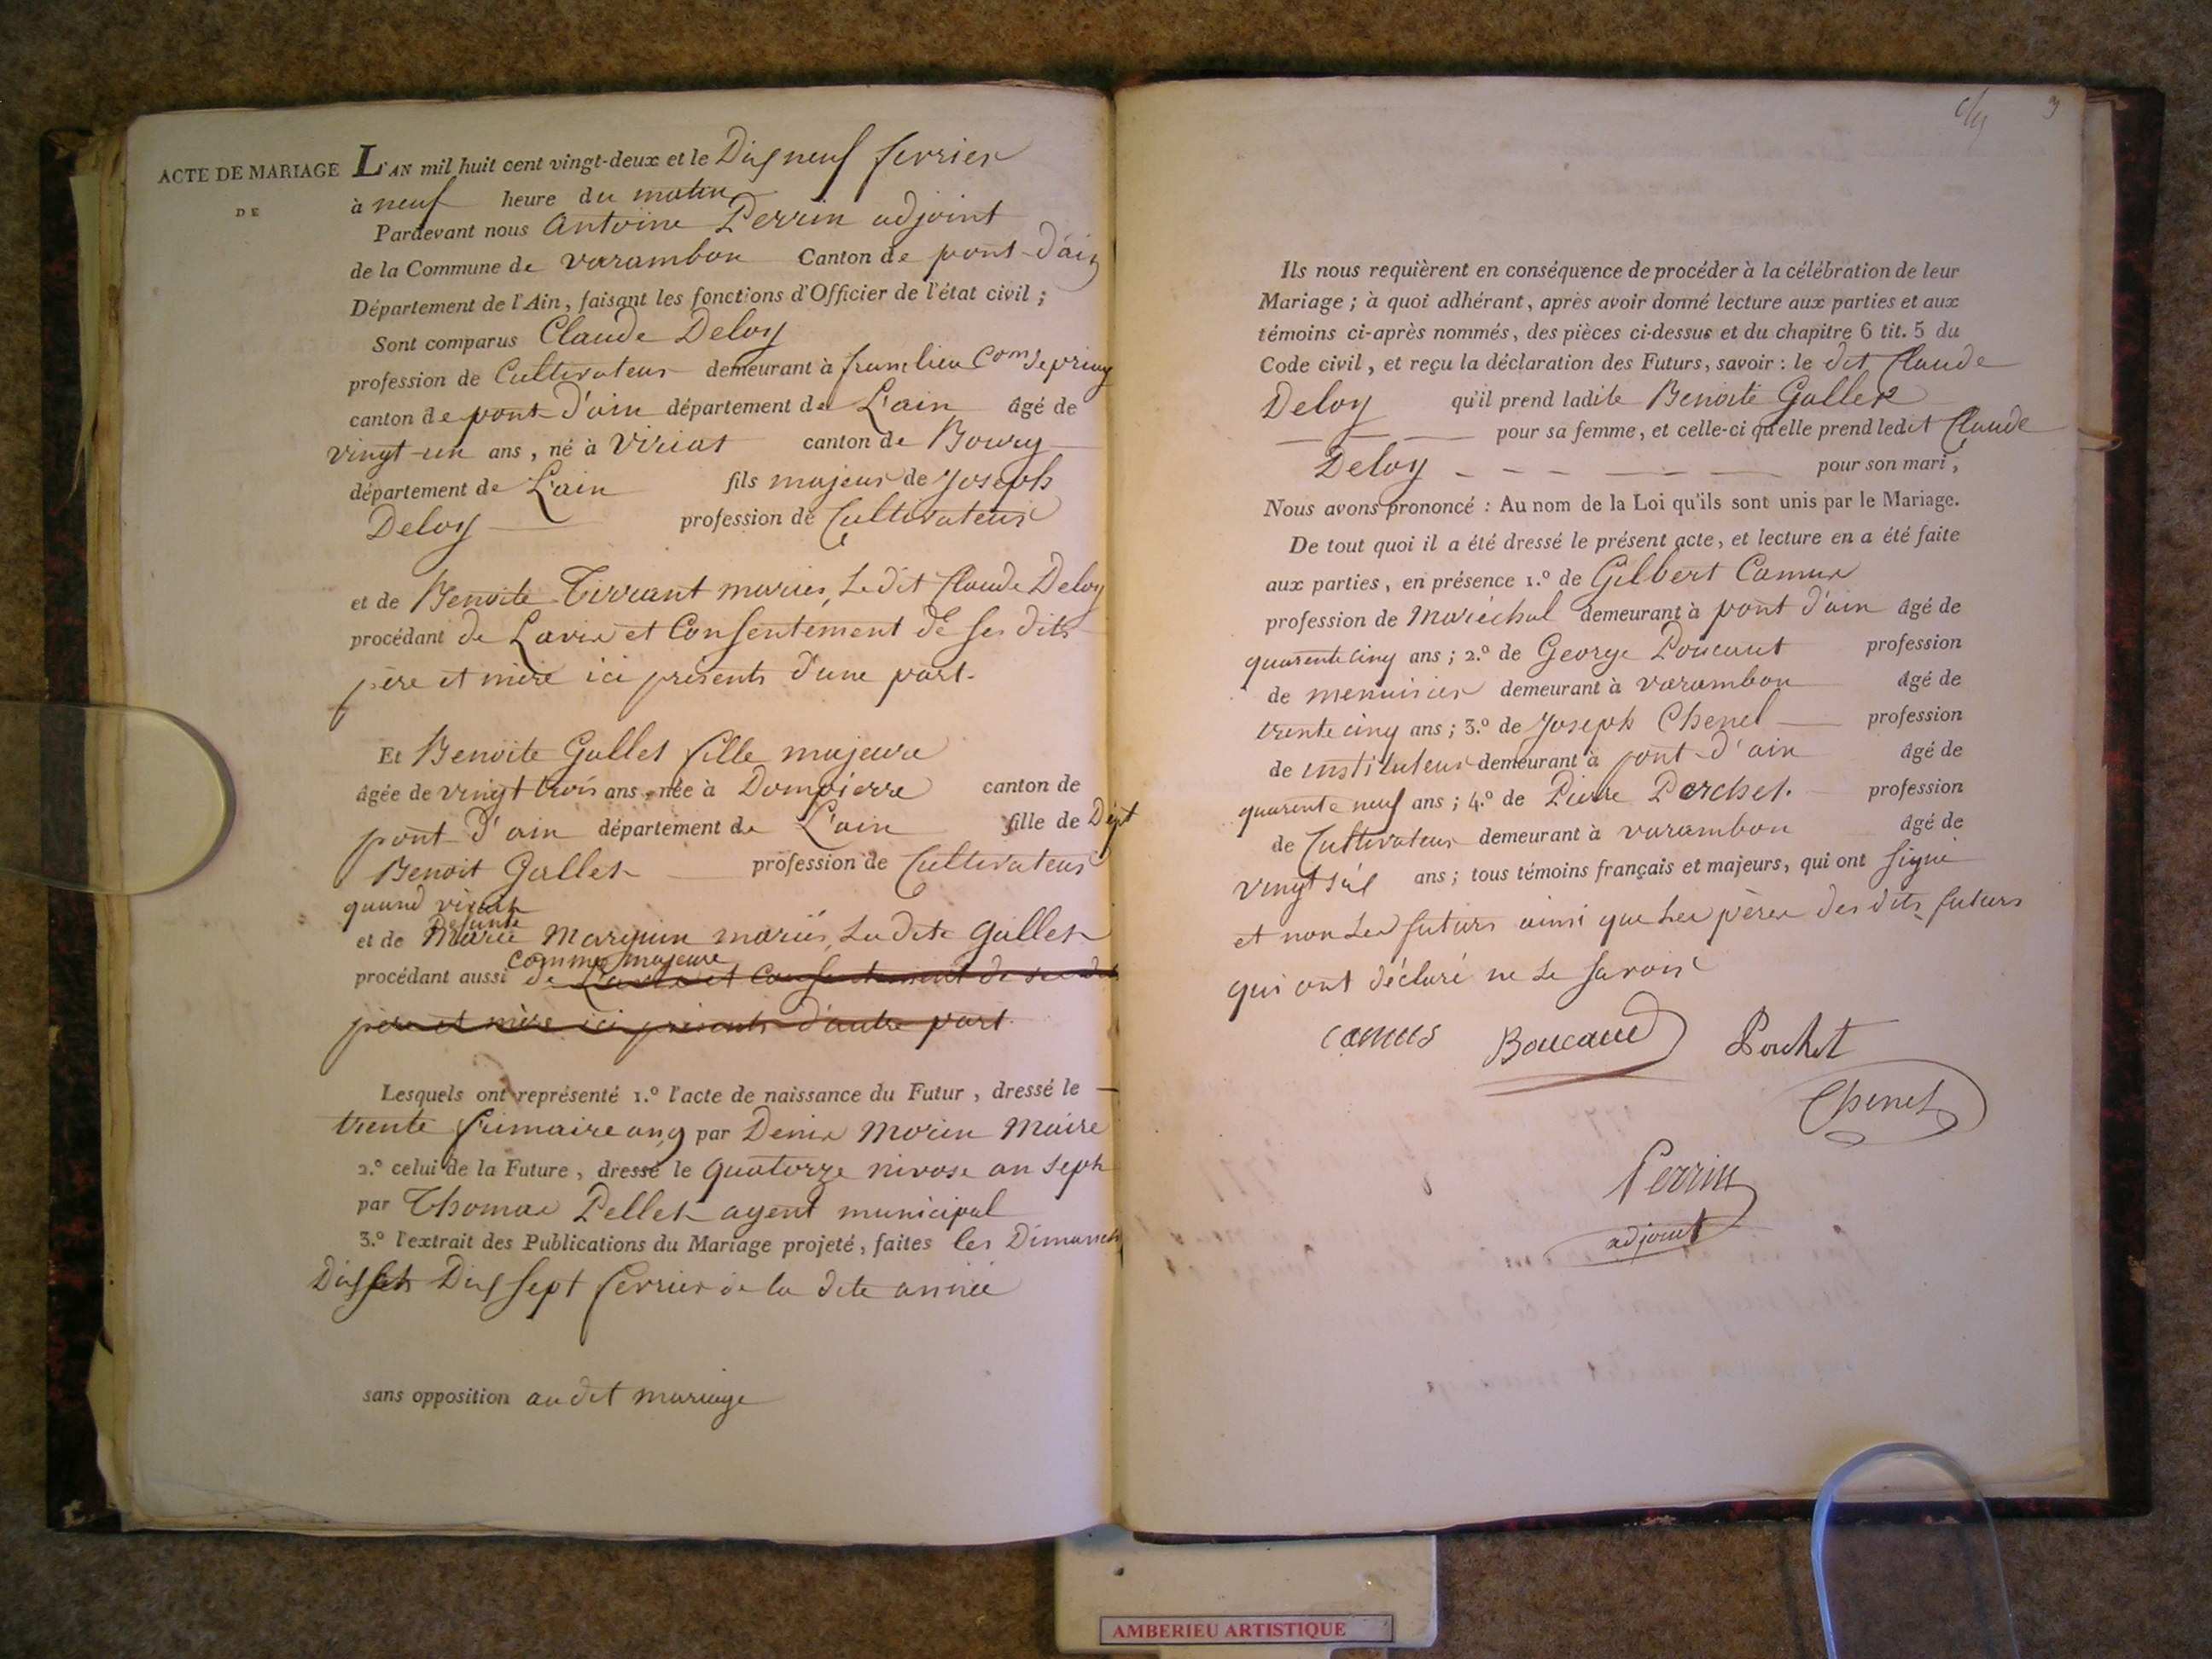 ACTE DE MARIAGE
DE
L'AN mil huit cent vingt-deux et le Dixneuf fevrier
à neuf heure du matin
Pardevant nous Antoine Perrin adjoint
de la Commune de varambon Canton de pont-d'ain
Département de l'Ain, faisant les fonctions d'Officier de l'état civil ;
Sont comparus Claude Deloy
profession de Cultivateur demeurant à
canton de pont d'ain département de L'ain âgé de
vingt-un ans, né à Viriat canton de Bourg
département de L'ain fils majeur de Joseph
Deloy profession de Cultivateur
et de Benoite Tirrant mariés, Le dit Claude Deloy
procédant de Lavis et Consentement de ses dits
père et mère ici présents d'une part.
Et Benoite Gallet fille majeure
âgée de vingt trois ans, née à Dompierre canton de
pont d'ain département de L'ain fille de
Benoit Gallet profession de Cultivateur
quand vivait
Defunte
et de Marie Marguin mariés, La dite Gallet
comme majeure
procédant aussi de Lavis et Consentement de ses dits
père et mère ici présents d'autre part.
Lesquels ont représenté 1.º l'acte de naissance du Futur, dressé le
trente frimaire an 9 par Denis Morin Maire
2.º celui de la Future, dressé le quatorze nivose an sept
par Thomas Pellet agent municipal
3.º l'extrait des Publications du Mariage projeté, faites les Dimanch
Dix sept fevrier de la dite année
sans opposition au dit mariage
3
Ils nous requièrent en conséquence de procéder à la célébration de leur
Mariage ; à quoi adhérant, après avoir donné lecture aux parties et aux
témoins ci-après nommés, des pièces ci-dessus et du chapitre 6 tit. 5 du
Code civil, et reçu la déclaration des Futurs, savoir : le dit Claude
Deloy qu'il prend ladite Benoite Gallet
pour sa femme, et celle-ci qu'elle prend ledit Claude
Deloy pour son mari,
Nous avons prononcé : Au nom de la Loi qu'ils sont unis par le Mariage.
De tout quoi il a été dressé le présent acte, et lecture en a été faite
aux parties, en présence 1.º de Gilbert Camus
profession de Maréchal demeurant à pont d'ain âgé de
quarente cinq ans ; 2.º de George Boucaut profession
de menuisier demeurant à varambon âgé de
trente cinq ans ; 3.º de Joseph Chenet profession
de instituteur demeurant à pont-d'ain âgé de
quarente neuf ans ; 4.º de Pierre Perchet. profession
de Cultivateur demeurant à varambon âgé de
vingt six ans ; tous témoins français et majeurs, qui ont signé
et non Les futurs ainsi que Les pères des dits futurs
qui ont déclaré ne Le savoir
Camus Boucaud Porchet
Chenet
Perrin
adjoint
AMBERIEU ARTISTIQUE